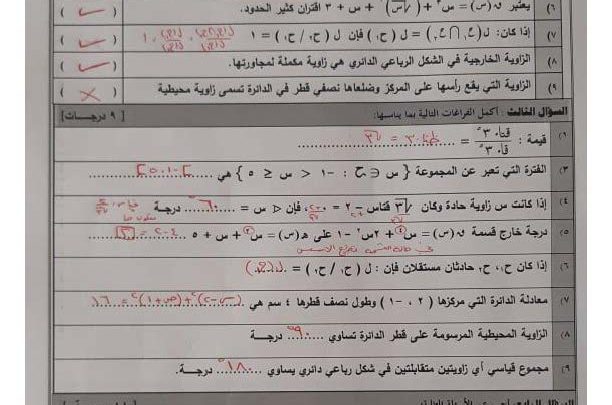 ٦) يعتبر ق(س) = س٢ + (√س)٢ + س + ٣ اقتران كثير الحدود. ( ✓ )
٧) إذا كان: ل(ح١ ∩ ح٢) = ل(ح١) فإن ل(ح٢/ح١) = ١ ( ✓ )
٨) الزاوية الخارجية في الشكل الرباعي الدائري هي زاوية مكملة لمجاورتها. ( ✓ )
٩) الزاوية التي يقع رأسها على المركز وضلعاها نصفي قطر في الدائرة تسمى زاوية محيطية ( × )
السؤال الثالث: أكمل الفراغات التالية بما يناسبها: [ ٩ درجات ]
قيمة : قتا٣٠° / قا٣٠° = ظتا٣٠ = √٣
٣) الفترة التي تعبر عن المجموعة { س ∈ ح : -١ < س ≤ ٥ } هي ]-١، ٥]
٤) إذا كانت س زاوية حادة وكان √٣ قتاس - ٢ = ٠، فإن > س = ٦٠° درجة
٥) درجة خارج قسمة ق(س) = س٤ + ٢س٢ - ١ على هـ(س) = س٢ + س + ٥ ٤-٢ = ٢
٦) إذا كان ح١، ح٢ حادثان مستقلان فإن: ل(ح١/ح٢) = ل(ح١)
٧) معادلة الدائرة التي مركزها (٢ ، -١) وطول نصف قطرها ٤ سم هي (س-٢)٢+(ص+١)٢ = ١٦
٨) الزاوية المحيطية المرسومة على قطر الدائرة تساوي ٩٠° درجة
٩) مجموع قياسي أي زاويتين متقابلتين في شكل رباعي دائري يساوي ١٨٠° درجة.